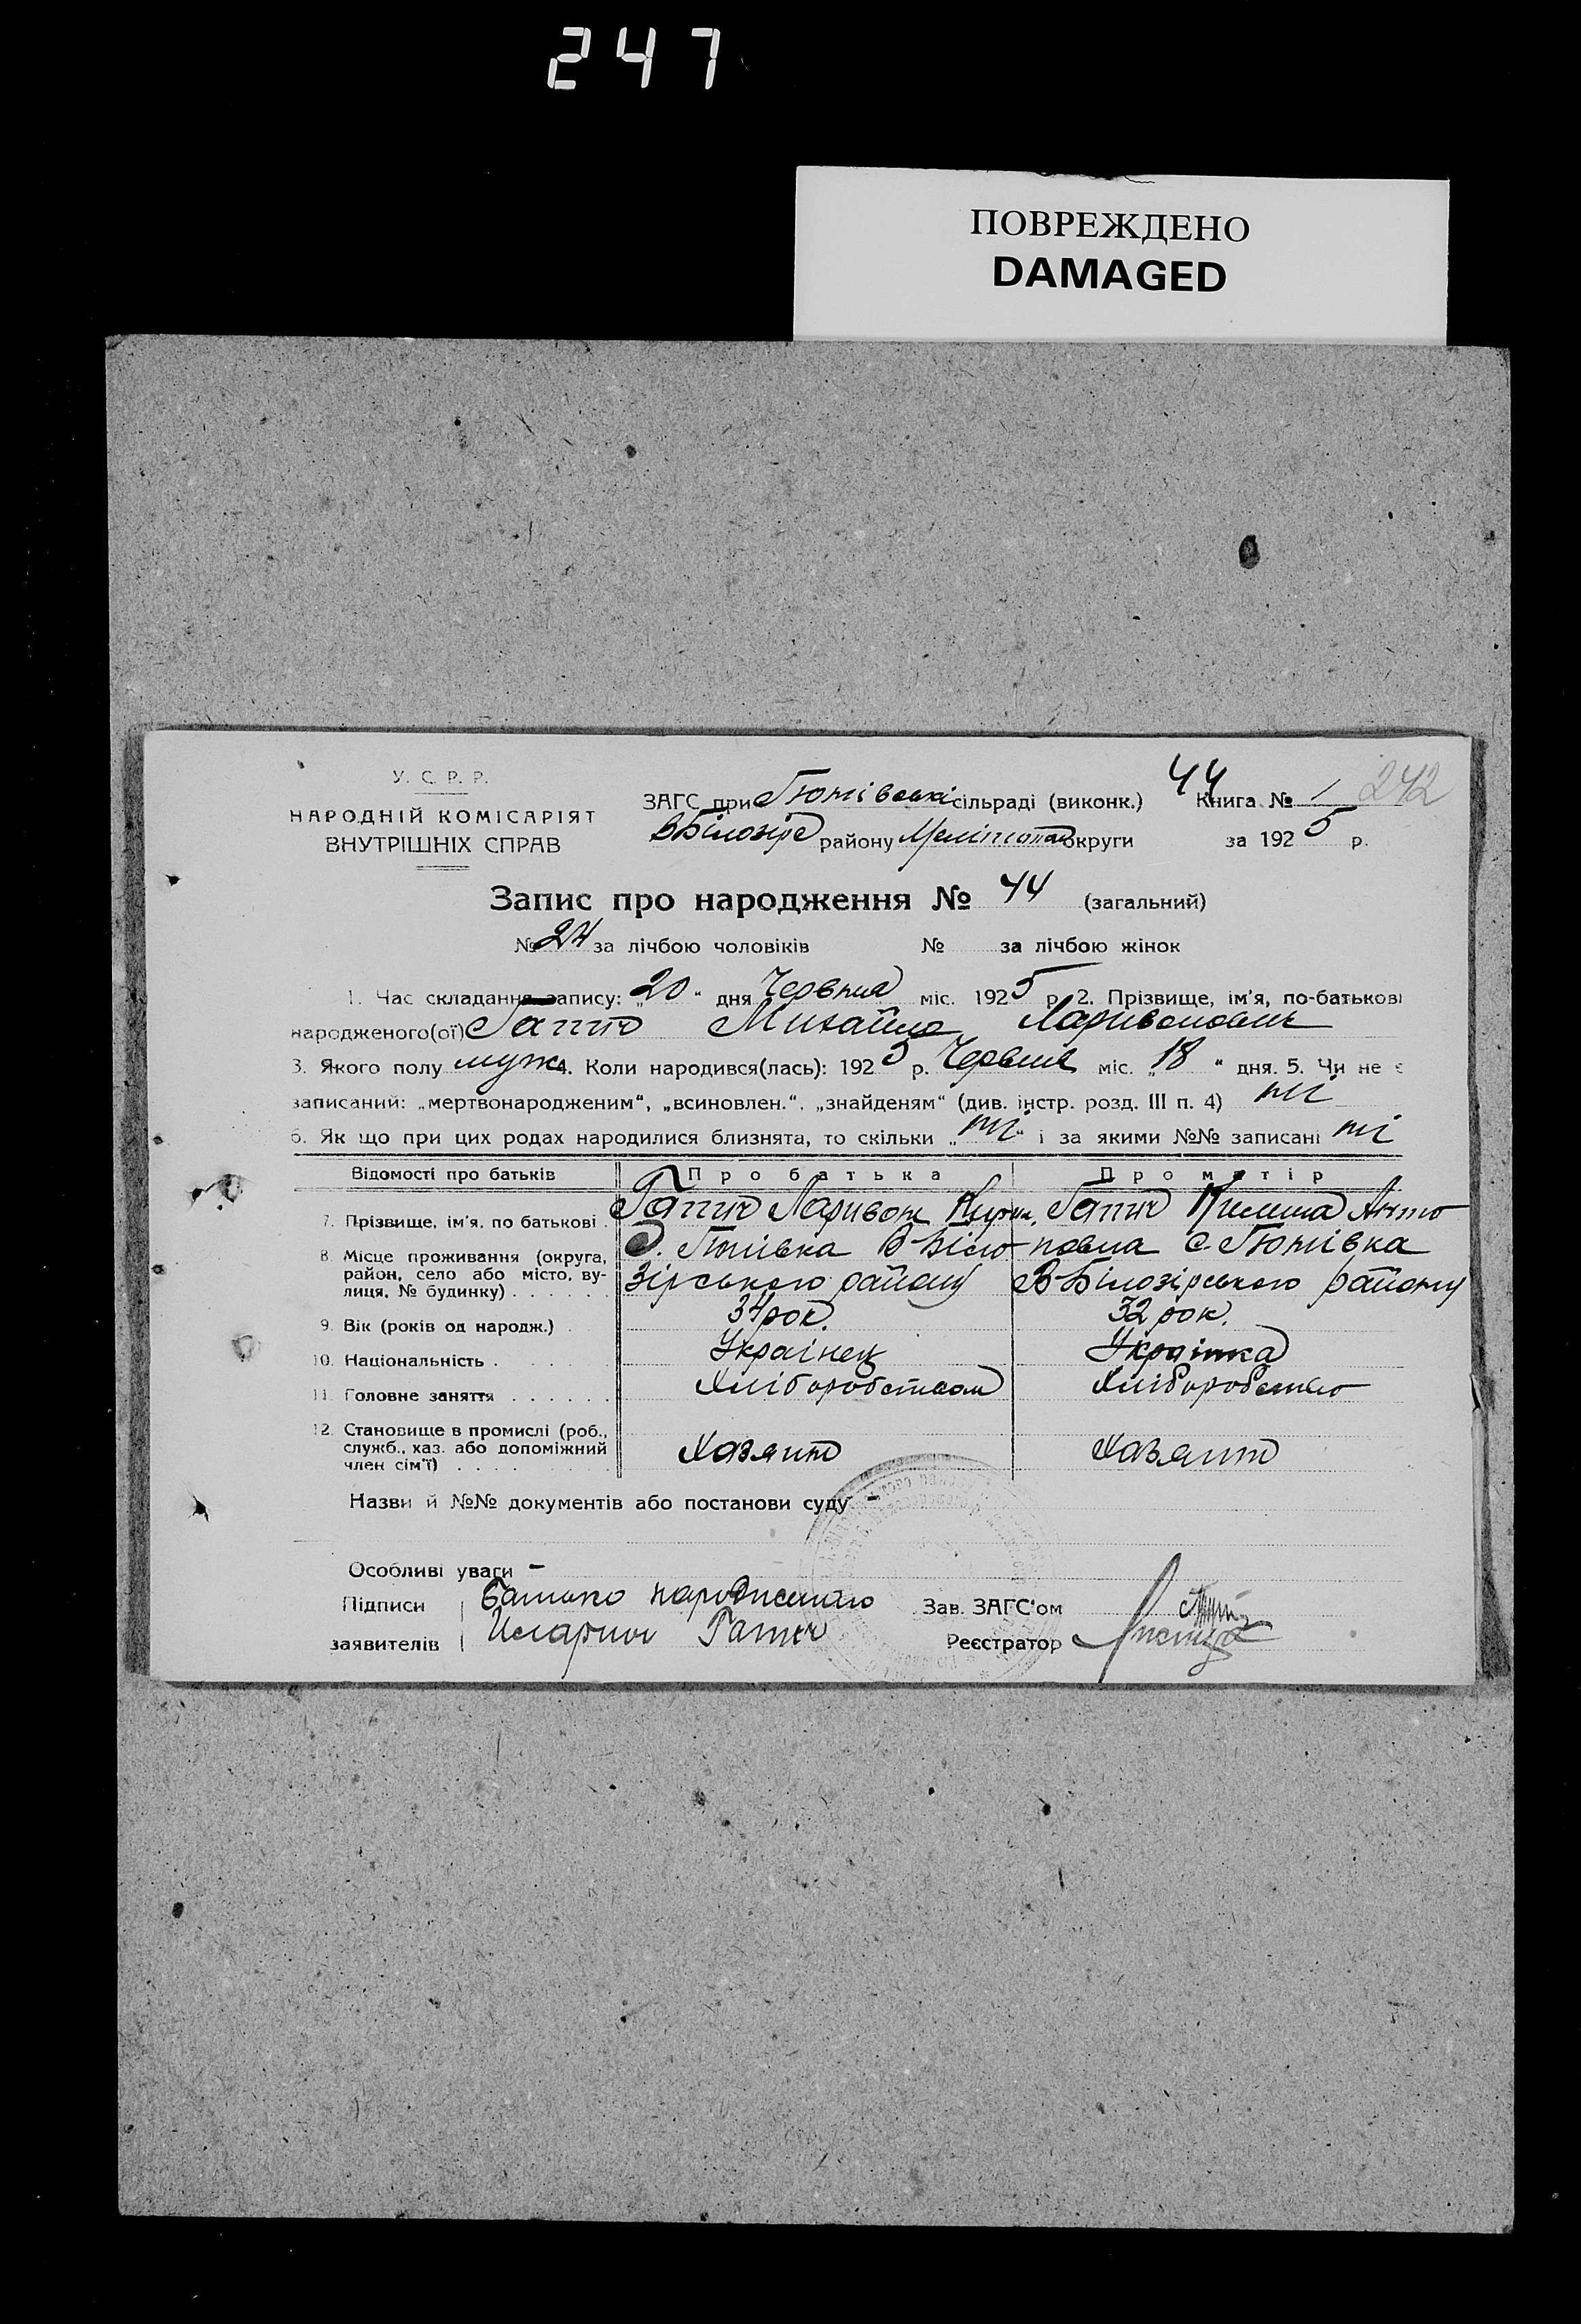 247
ПОВРЕЖДЕНО
DAMAGED
У. С. Р. Р.
НАРОДНІЙ КОМІСАРІЯТ
ВНУТРІШНІХ СПРАВ
ЗАГС при Гюнівські сільраді (виконк.) 44 Книга № 1 242
ВБілозір району Мелітопол округи за 1925 р.
Запис про народження № 44 (загальний)
№ 24 за лічбою чоловіків № за лічбою жінок
1. Час складання запису: „20“ дня Червня міс. 1925 р. 2. Прізвище, ім'я, по-батькові
народженого(ої) Михайло Ларивонович
3. Якого полу муж. 4. Коли народився(лась): 1925 р. Червня міс. „18“ дня. 5. Чи не є
записаний: „мертвонародженим“, „всиновлен.“, „знайденям“ (див. інстр. розд. III п. 4) ні
6. Як що при цих родах народилися близнята, то скільки „ні“ і за якими №№ записані ні
Відомості про батьків Про батька Про матір
7. Прізвище, ім'я, по батькові Ларивон Анто
8. Місце проживання (округа, С. Гюнівка В Біло повна с. Гюнівка
район, село або місто, ву- зірського району В-Білозірського району
лиця, № будинку)
9. Вік (років од народж.) 34 рок. 32 рок.
10. Національність Українец Українка
11. Головне заняття Хліборобством Хліборобство
12. Становище в промислі (роб.,
служб., хаз. або допоміжний Хазяин Хазяин
член сім'ї)
Назви й №№ документів або постанови суду -
Особливі уваги -
Підписи Батько Зав. ЗАГС'ом
заявителів Реєстратор